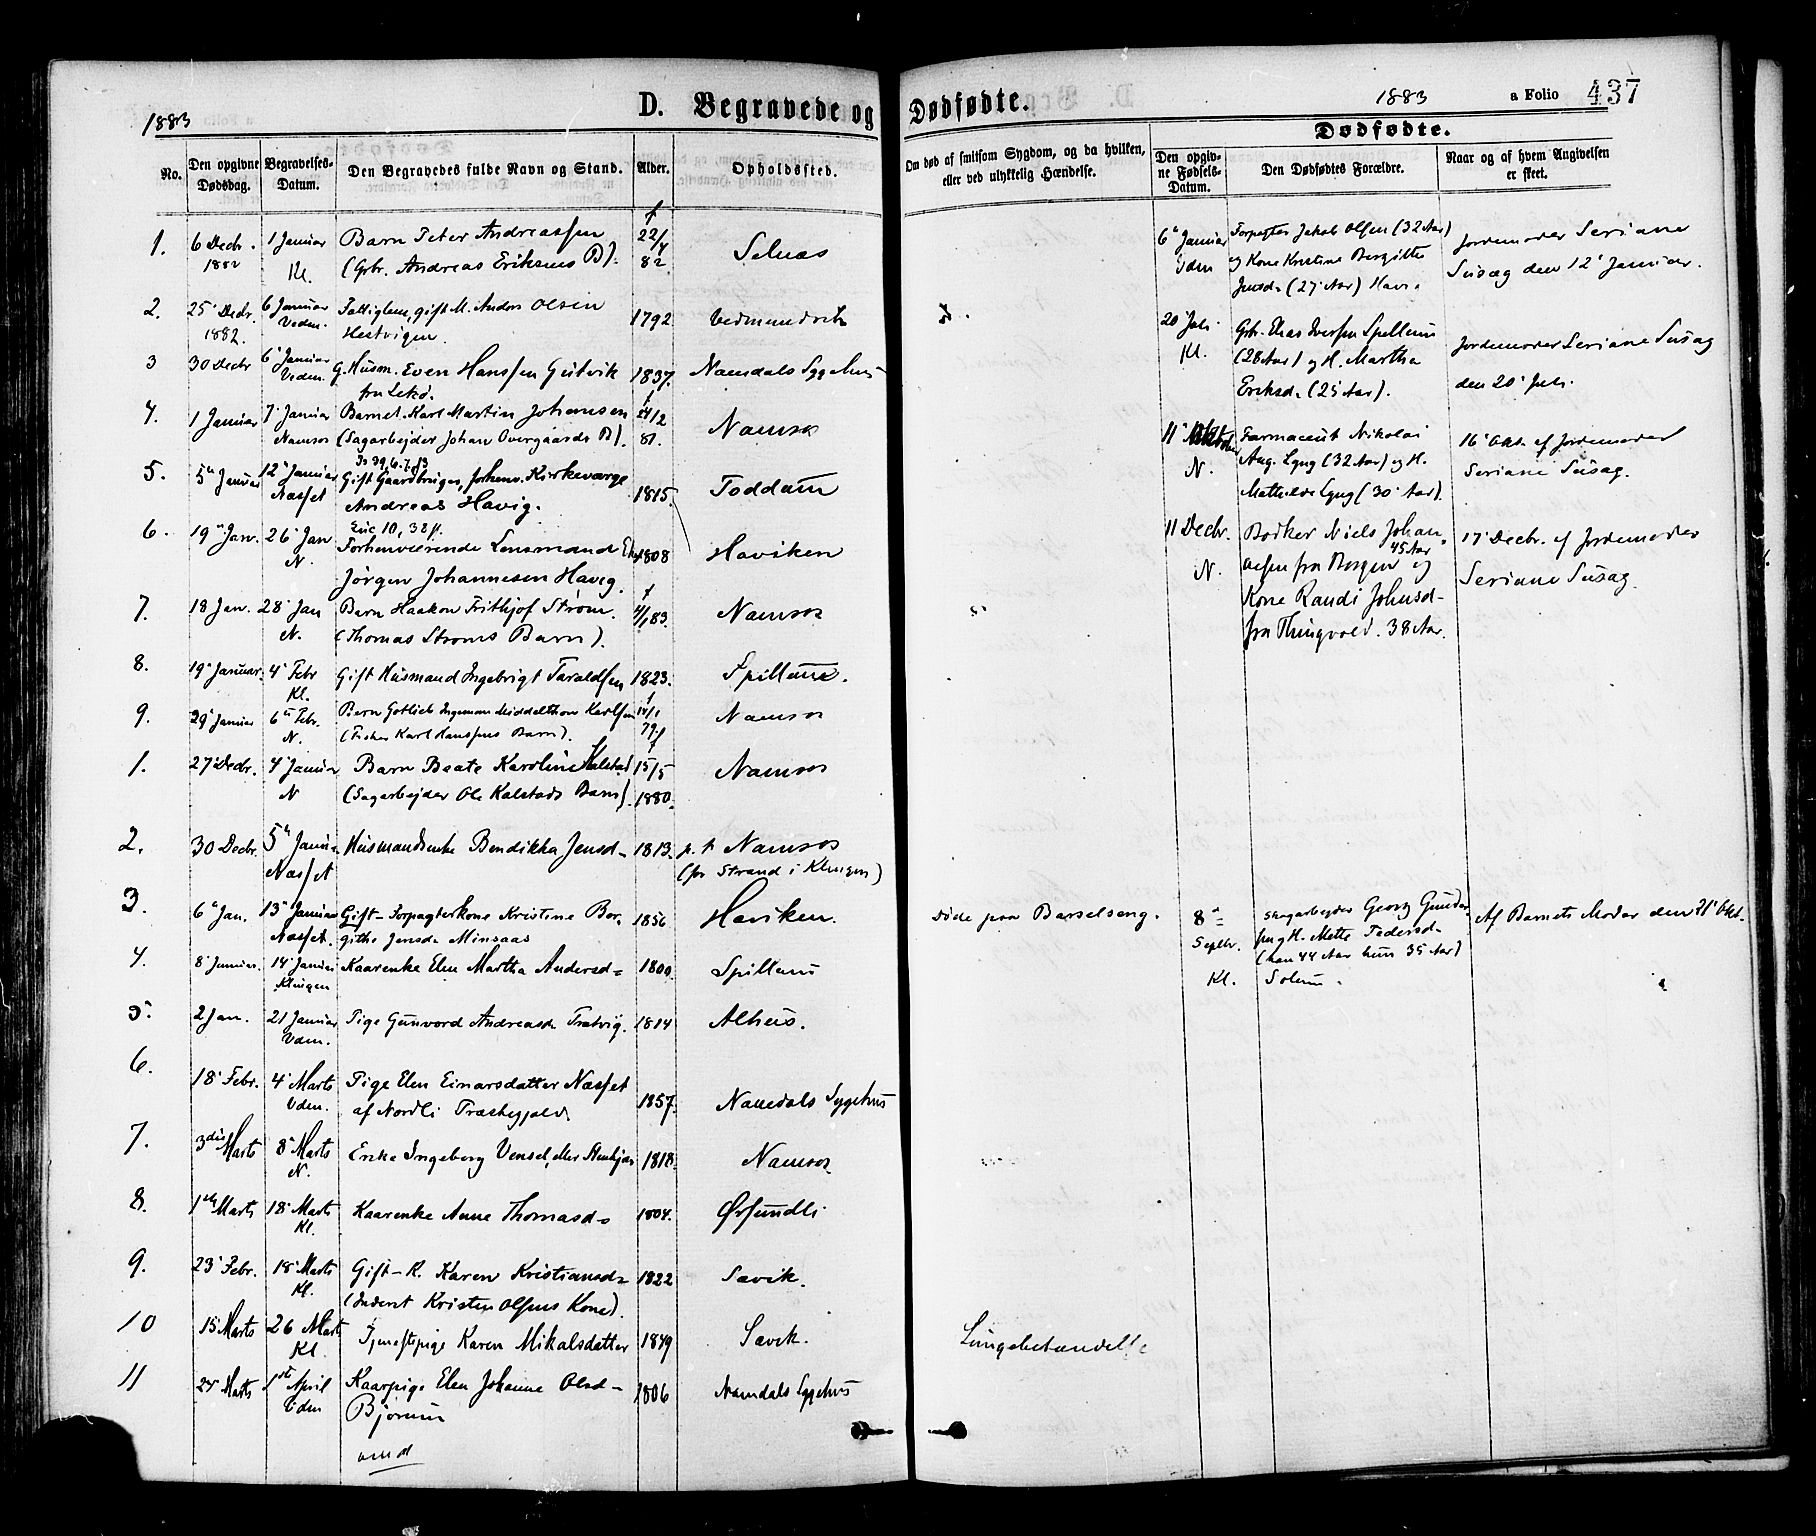 1883
D. Begravede og Dødfødte.
1883
a Folio 437
No.
Den opgivne Dødsdag.
Begravelses-Datum.
Den Begravedes fulde Navn og Stand.
Alder.
Opholdssted.
Om død af smitsom Sygdom, og da hvilken, eller ved ulykkelig Hændelse.
Dødfødte.
Den opgivne Fødsels-Datum.
Den Dødfødtes Forældre.
Naar og af hvem Angivelsen er skeet.
1. 6 Decbr. 1 Januar Barn Peter Andreassen f 22/4 Selnæs
1882 Kl. (Grbr. Andreas Eriksens B). 82
2. 25' Decbr. 6 Januar gift M. Anders Olsen 1792
1882. Vedm. Hestvigen.
3 30 Decbr 6' Januar G. Husm. Even Hanssen Gutvik 1837. Namdals Sygehus
Vedm. fra Lekø.
4. 1 Januar 7' Januar Barnet Karl Martin Johansen f 24/2 Namsos
Namsos (Sagarbejder Johan Overgaards B). 81.
5. 5 Januar 12' Januar Gift Gaardbruger, forhenv. Kirkeværge 1815. Toddum
Næsset Andreas Havig.
6. 19 Jan. 26' Jan Luc 10, 38 ff.
N. Forhenværende Lensmand 1808 Haviken
Jørgen Johannesen Havig.
7. 18 Jan. 28' Jan Barn Haakon Frithjof Strøm f 4/1 83. Namsos
N. (Thomas Strøms Barn).
8. 19' Januar. 4' Febr Gift Husmand Ingebrigt Taraldsen 1823. Spillum.
Kl.
9. 29' Januar 6 Febr. Barn Gotlieb Ingeman Middelthon Karlsen f 14/1 Namsos
N. (Fisker Karl Hanssens Barn). 79
1. 27' Decbr. 4' Januar Barn Beate Karoline Kalstad f 15/5 Namsos
N (Sagarbejder Ole Kalstads Barn). 1880.
2. 30 Decbr. 5 Januar Husmandsenke Bendikka Jensd- 1813. p. t Namsos
Næsset (fr Strand i Klingen)
3. 6 Jan. 13' Januar Gift- Forpagterkone Kristine Bor- 1856 Haviken. døde paa Barselseng.
Næsset. githe Jensd= Minsaas
4. 8 Januar. 14' Januar Kaarenke Elen Martha Andersd= 1800. Spillum
Klingen
5. 2 Jan. 21 Januar Pige Gunvord Andreasd= Tratvig. 1814 Alhus.
Vdm.
6. 18' Febr. 4' Marts Pige Elen Einarsdatter Næsset 1857. Namdals Sygehus
Vdm. af Nordli
7. 3die Marts 8 Marts Enke Ingeborg 1818. Namsos
N.
8. 1 Marts 18' Marts Kaarenke Anne Thomasd= 1804.
Kl.
9. 23' Febr. 18' Marts Gift- K. Karen Kristiansd= 1822 Sævik.
Kl. (Inderst Kristen Olsens Kone).
10 15 Marts 26 Marts Tjenestepige Karen Mikalsdatter 1849 Sævik. Lungebetændelse
Kl.
11 24 Marts 1ste April Kaarpige Elen Johanne Olsd- 1806 Namdals Sygehus
Vdm Bjørum
6 Januar Forpagter Jakob Olsen (32 Aar) Jordemoder Seriane
Vdm og Kone Kristine Borgitte Susæg den 12' Januar.
Jensd= (27 Aar) Havi=
20' Juli Grbr. Elias Iversen Spillum Jordemoder Seriane Susæg
Kl. (28 Aar) og H. Martha den 20' Juli.
Eriksd= (25 Aar).
11' Oktober Farmaceut Nikolai 16' Okt. af Jordemoder
N. Aug. Lyng (32 Aar) og H. Seriane Susæg.
Mathilde Lyng (30' Aar).
11 Decbr. Bødker Niels Johan- 17' Decbr. af Jordemoder
N. nesen fra Bergen 45 Aar og Seriane Susæg.
Kone Randi Johnsd-
fra Thingvold. 38 Aar.
8 Septbr. Sagarbejder Georg Gunder- Af Barnets Moder den 21' Okt.
Kl. sen og H. Mette Pedersd=
(han 44 Aar hun 35 Aar)
Solum.